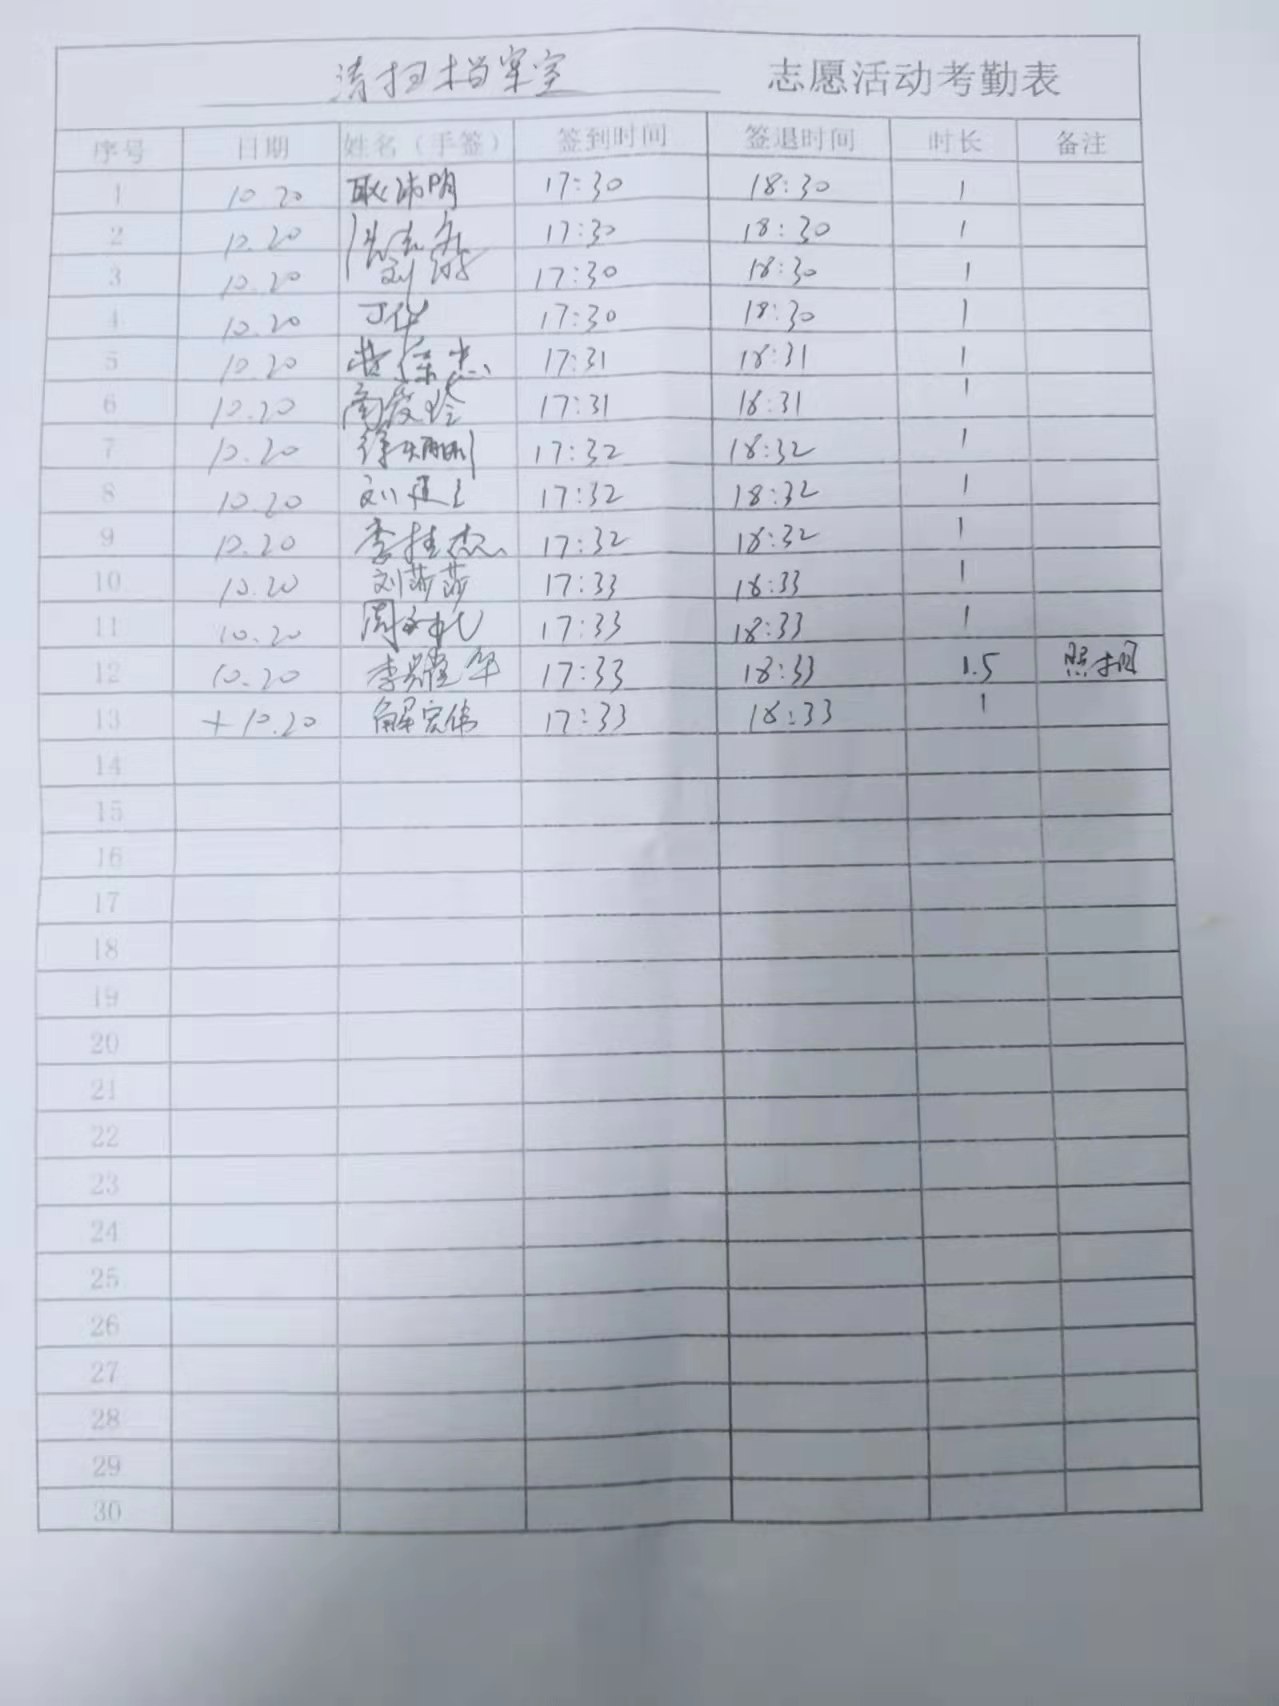 清扫档案室 志愿活动考勤表
序号 日期 姓名（手签） 签到时间 签退时间 时长 备注
1 10.20 耿沛明 17:30 18:30 1
2 10.20 17:30 18:30 1
3 10.20 刘 17:30 18:30 1
4 10.20 丁华 17:30 18:30 1
5 10.20 17:31 18:31 1
6 10.20 17:31 18:31 1
7 10.20 17:32 18:32 1
8 10.20 刘 17:32 18:32 1
9 10.20 李桂杰 17:32 18:32 1
10 10.20 刘莎莎 17:33 18:33 1
11 10.20 周 17:33 18:33 1
12 10.20 李耀华 17:33 18:33 1.5 照相
13 + 10.20 解宏伟 17:33 18:33 1
14
15
16
17
18
19
20
21
22
23
24
25
26
27
28
29
30